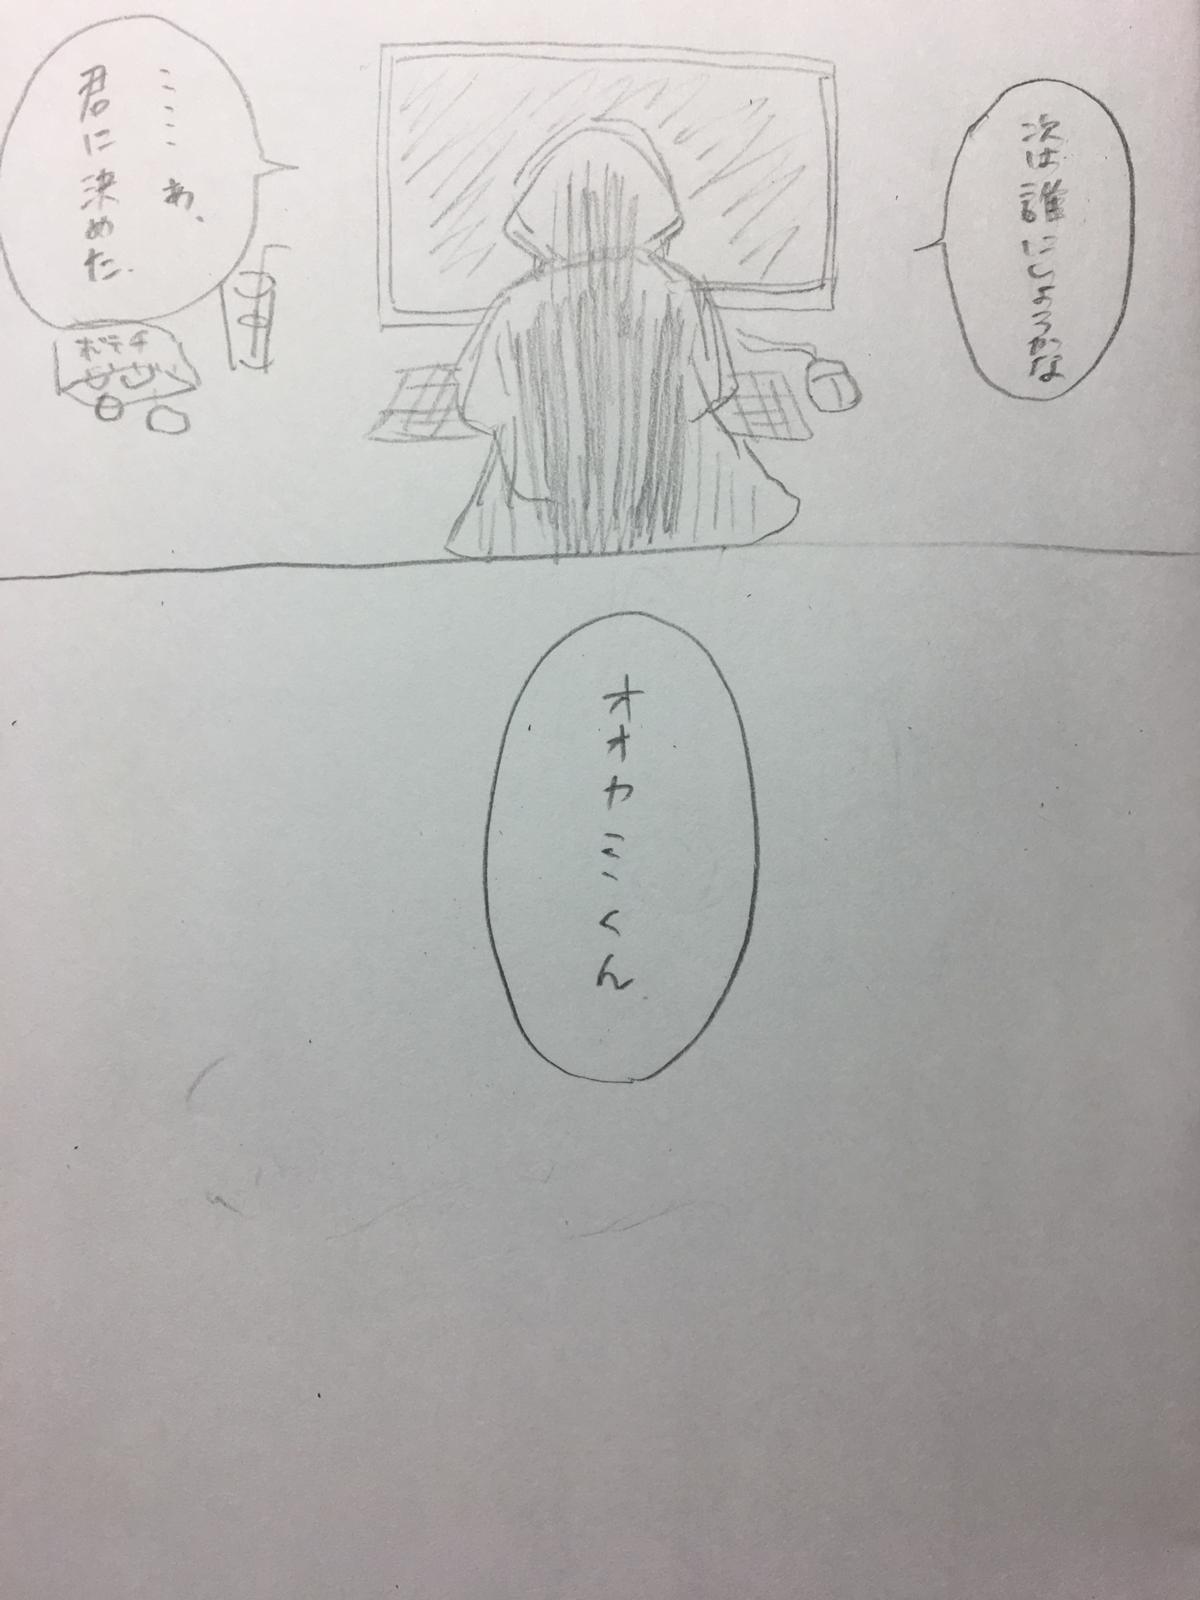 次は誰にしようかな
……あ、
君に決めた.
ポテチ
オオカミくん